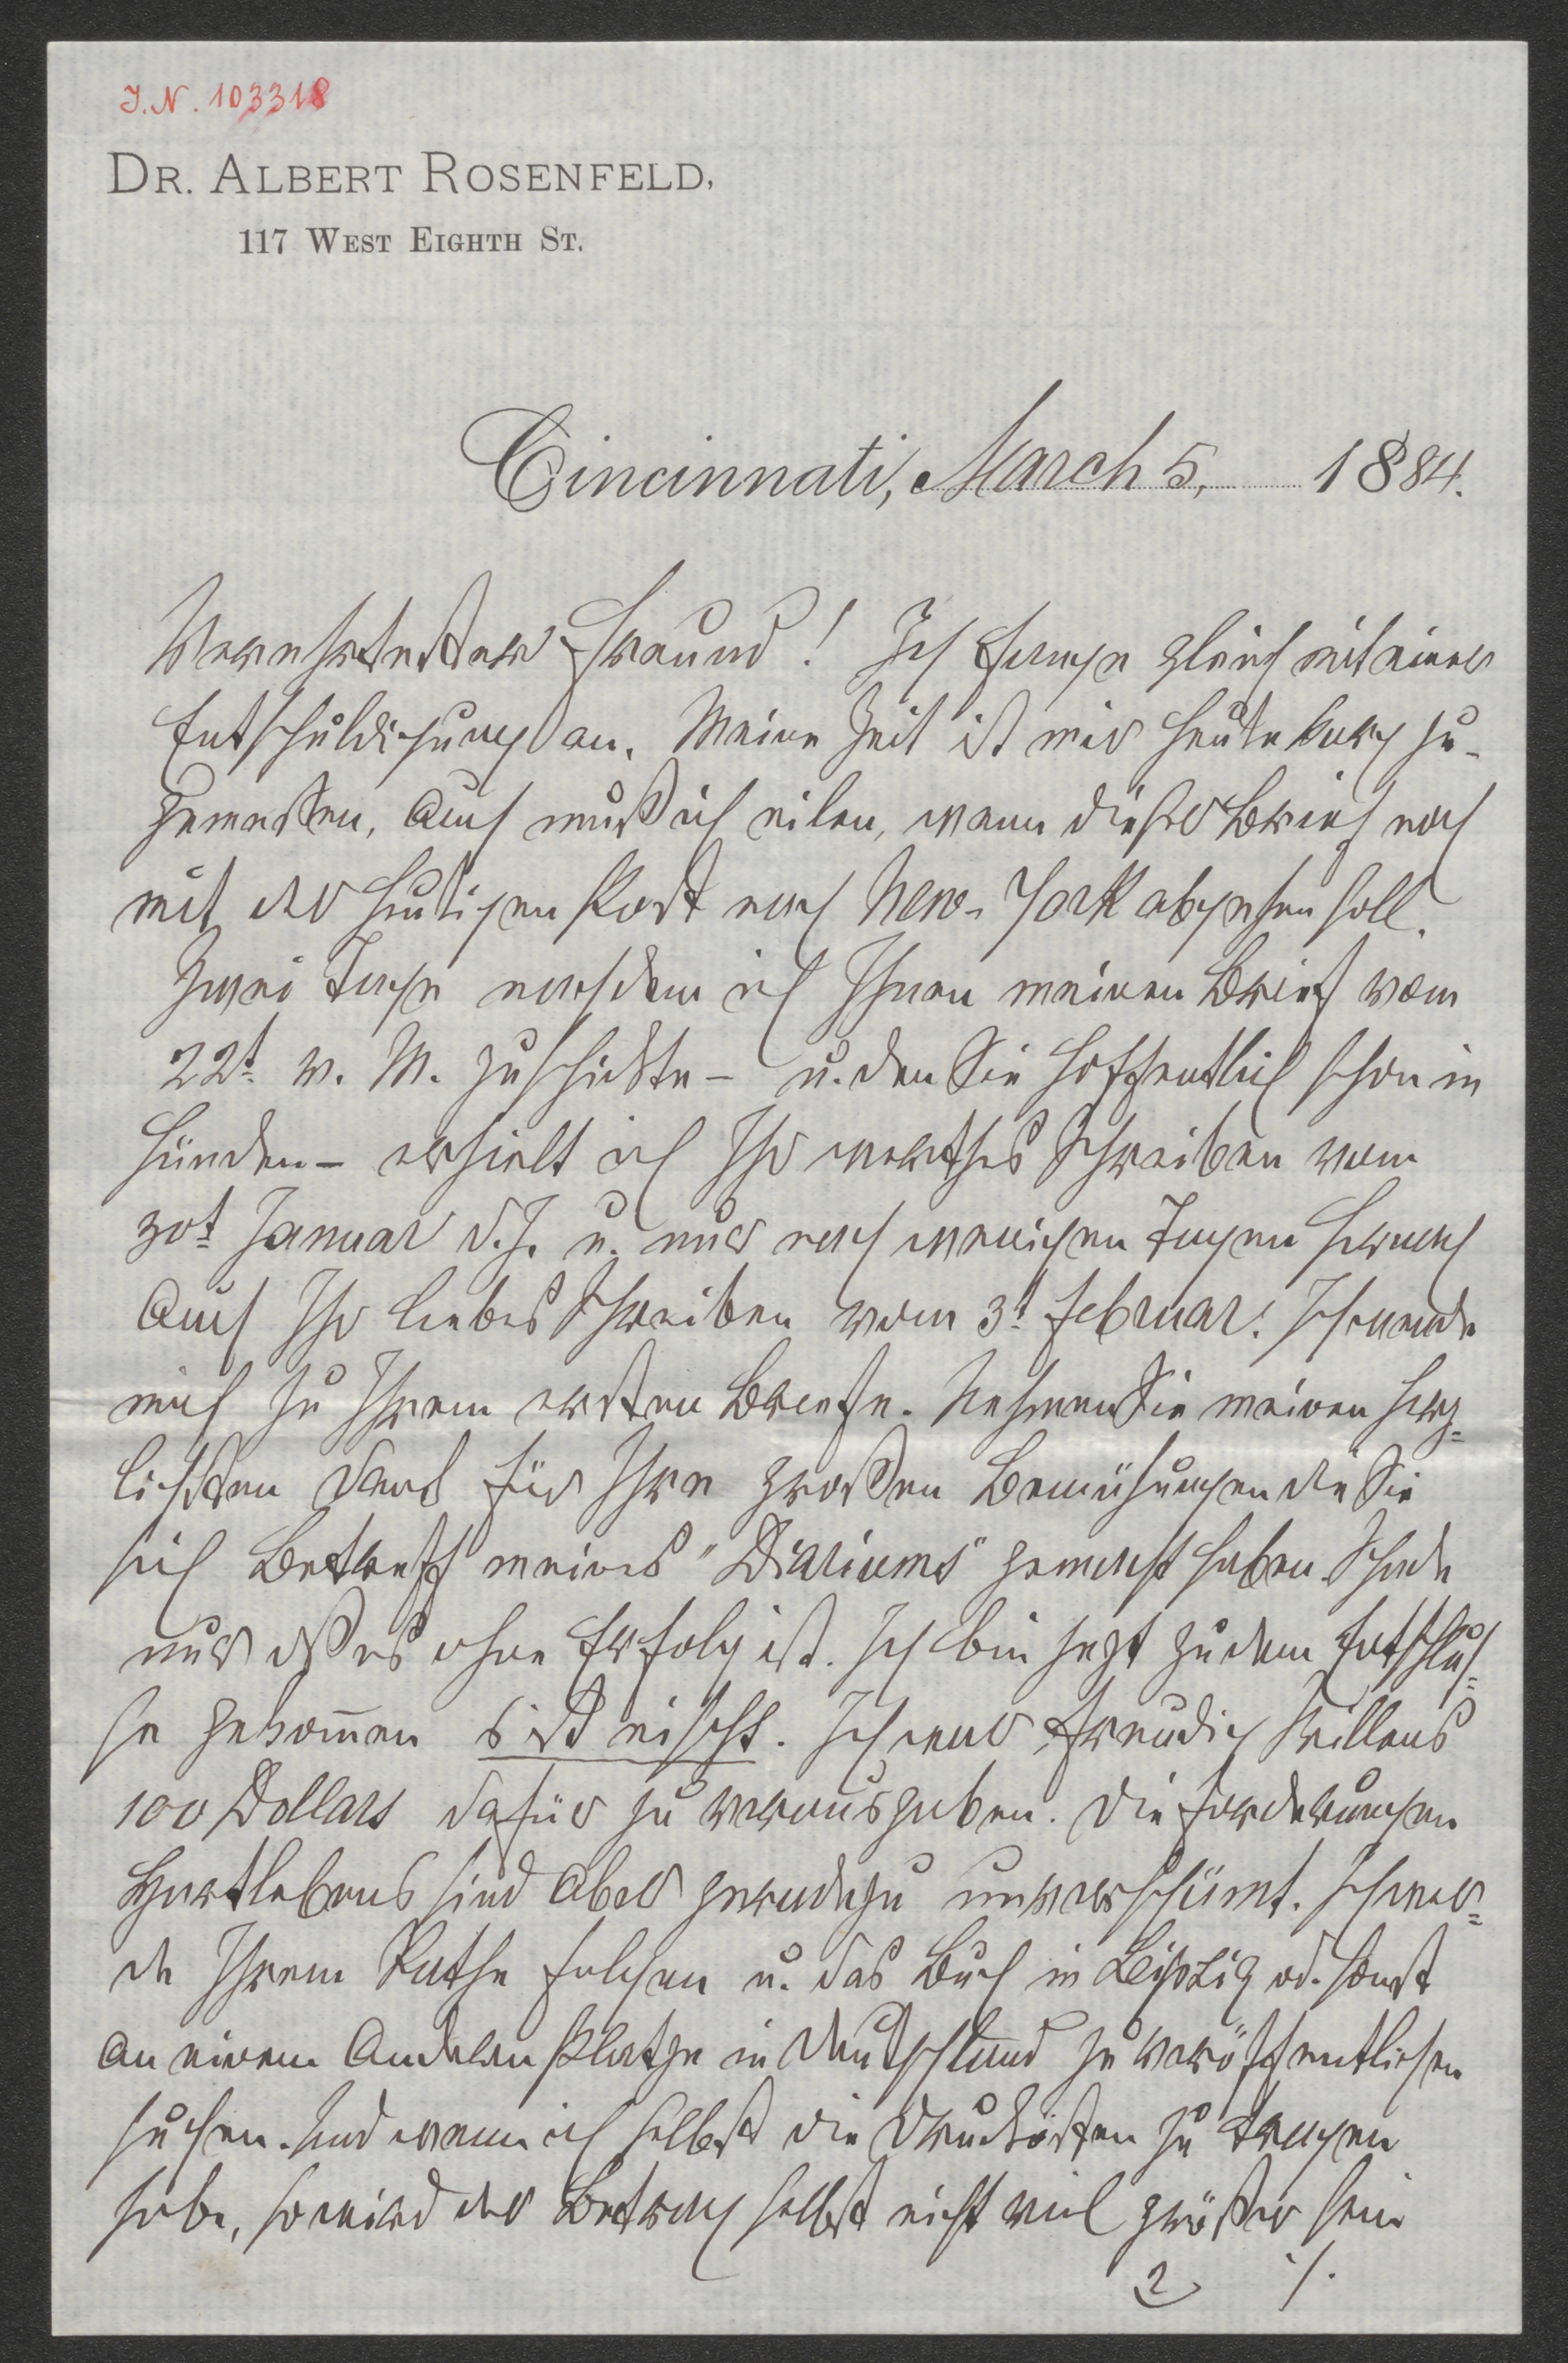 J.N. 103318
DR. ALBERT ROSENFELD,
117 WEST EIGHTH ST.
Cincinnati, March 5, 1884.
Verehrtester Freund! Ich fange gleich mit einer
Entschuldigung an. Meine Zeit ist mir heute kurz zu-
gemessen, auch muß ich eilen, wenn dieser Brief noch
mit der heutigen Post nach New-York abgehen soll.
Zwei Tage nachdem ich Ihnen meinen Brief vom
22t. v. M. zuschickte – u. den Sie hoffentlich schon in
Händen – erhielt ich Ihr werthes Schreiben vom
30t Januar d. J. u. nur nach wenigen Tagen hernach
auch Ihr liebes Schreiben vom 3t Februar. Ich wende
mich zu Ihrem ersten Briefe. Nehmen Sie meinen herz=
lichsten Dank für Ihre großen Bemühungen die Sie
sich Betreff meines "Diariums" gemacht haben. Schade
nur dß es ohne Erfolg ist. Ich bin jetzt zu dem Entschlus=
se gekom̄en s'ist nischt. Ich war freudig Willens
100 Dollars dafür zu verausgaben. Die Forderungen
Hartlebens sind aber geradezu unverschämt. Ich wer=
de Ihrem Rathe folgen u. das Buch in Leipzig od. sonst
an einem anderen Platze in Deutschland zu veröffentlichen
suchen. Und wenn ich selbst die Druckkosten zu tragen
habe, so wird der Betrag selbst nicht viel größer sein
2 ./.